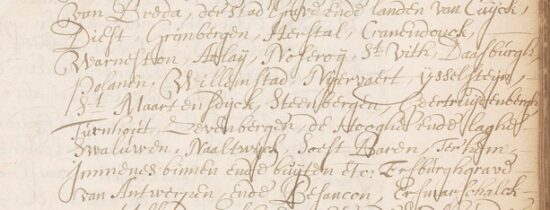 van Breda, der Stad Grave ende landen van Cuijck,
Diest, Grimbergen, Herstal, Cranendonck,
Warneston, Arlaij, Noseroij, St Vith, Daasburgh
Polanen, Willemstad, Nijervaert, ijsselsteijn,
St Maartensdijck, Steenbergen, Geertruijdenbergh
Turnhout, Sevenbergen, de Hooghe ende laghe
Swaluwen, Naaltwijck, Soest Baren, Ter Eem
Immenes binnen ende buijten etc: Erfburghgrave
van Antwerpen, ende Besancon, Erfmarschalck